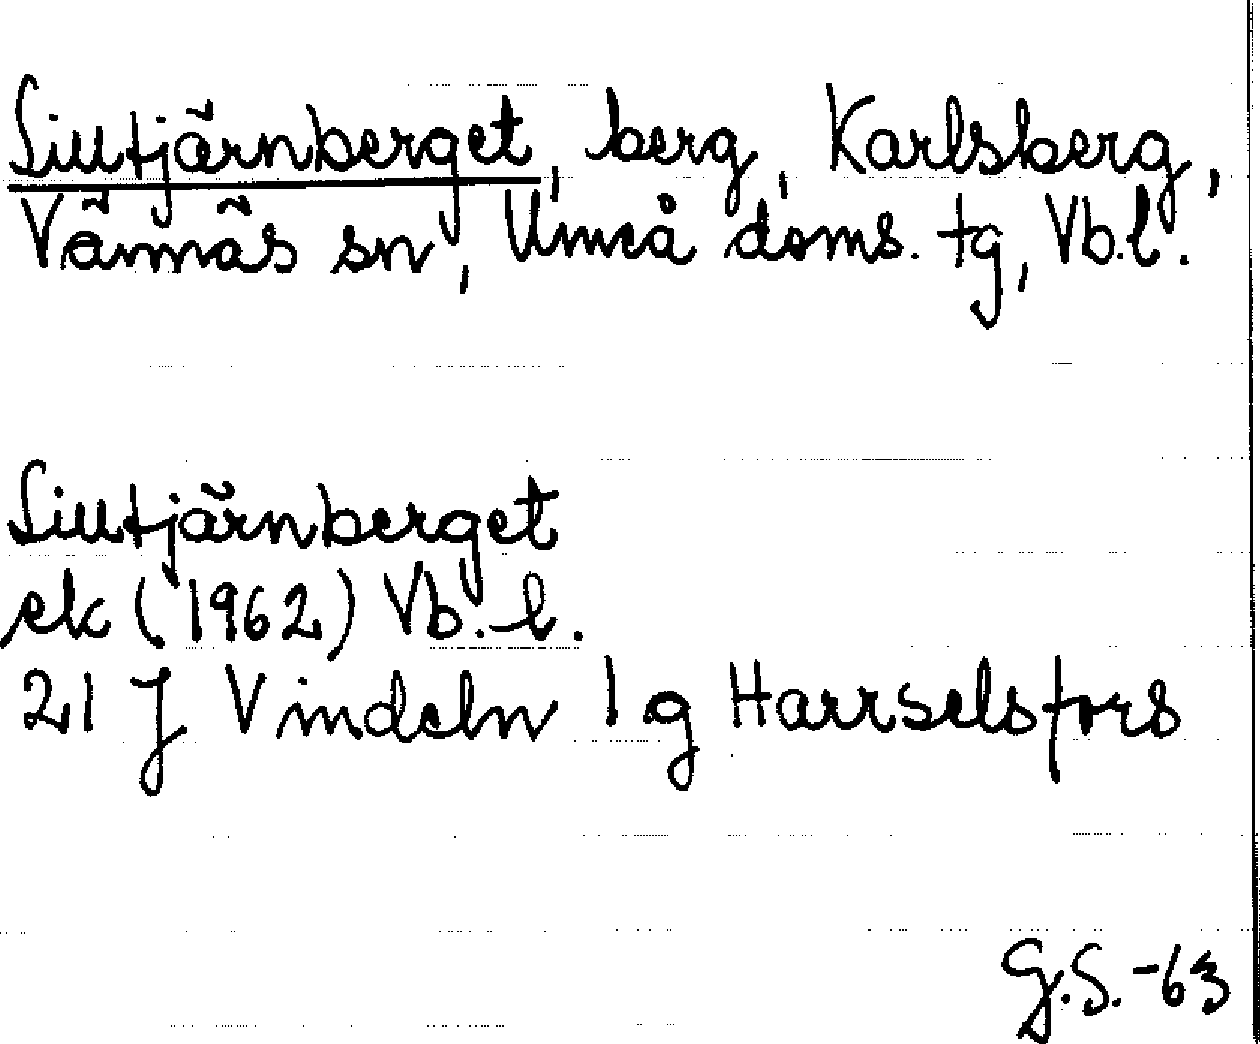 Siutjärnberget, berg, Karlsberg,
Vännäs sn, Umeå doms. tg, Vb.l.
Siutjärnberget
ek (1962) Vb.l.
21 J Vindeln 1 g Harrselsfors
G.S. -63